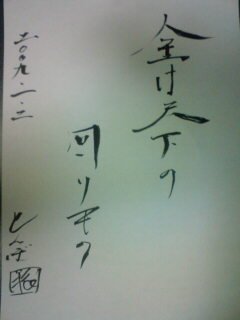 金は天下の
回りもの
二〇〇九・一・二
とんぼ